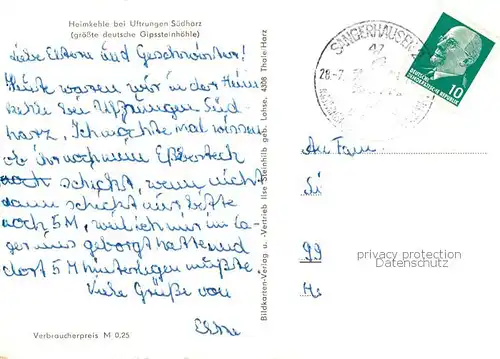 Heimkehle bei Uftrungen Südharz
(größte deutsche Gipssteinhöhle)
Liebe Eltern und Geschwister!
Heute waren wir in der Heim
kehle bei Uftrungen Süd-
harz. Ich möchte mal wissen
ob ihr noch mein Eßbesteck
noch schickt, wenn nicht
dann schickt mir bitte
noch 5 M, weil ich mir im La-
ger eins geborgt hatte und
dort 5 M hinterlegen mußte.
Viele Grüße von
Verbraucherpreis M 0,25
Bildkarten-Verlag u. -Vertrieb Ilse Steinhilb geb. Lohse, 4308 Thale/Harz
SANGERHAUSEN
47
DEUTSCHE
DEMOKRATISCHE REPUBLIK
10
An Fam.
privacy protection
Datenschutz